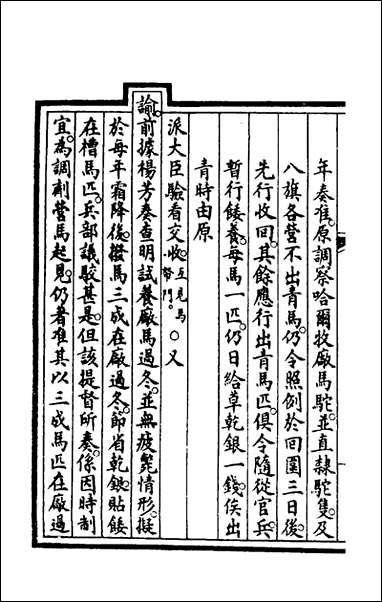 年奏准。原調察哈爾牧廠馬駝。並直隸駝隻。及
八旗各營不出青馬。仍令照例於回圍三日後。
先行收回。其餘應行出青馬匹。俱令隨從官兵。
暫行餧養。每馬一匹。仍日給草乾銀一錢。俟出
青時由原
派大臣驗看交收。互見馬督門。○又
諭。前據楊芳奏查明試養廠馬過冬。並無疲斃情形。擬
於每年霜降後。撥馬三成在廠過冬。節省乾銀。貼餧
在槽馬匹。兵部議駮甚是。但該提督所奏。係因時制
宜。為調劑營馬起見。仍著准其以三成馬匹在廠過